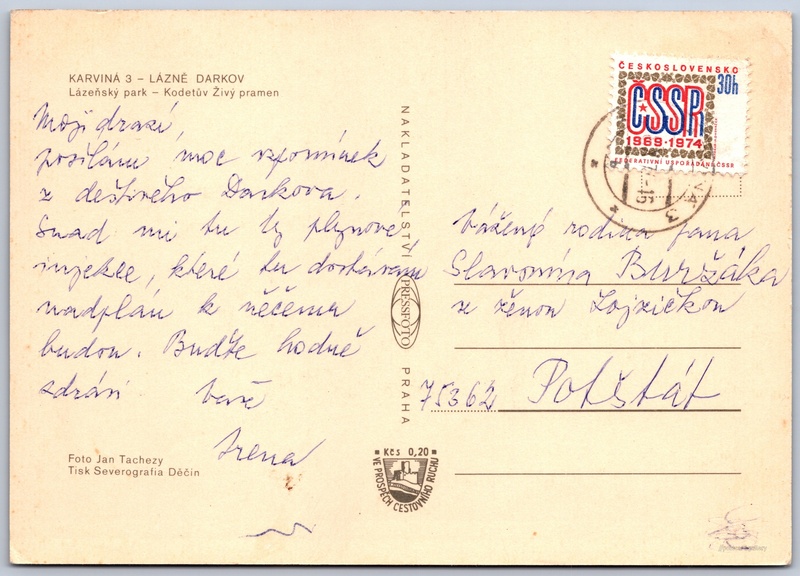 KARVINÁ 3 – LÁZNĚ DARKOV
Lázeňský park – Kodetův Živý pramen
Moji drazí,
posílám moc vzpomínek
z deštivého Darkova.
Snad mi tu ty plynové
injekce, které tu dostávám
nadplán k něčemu
budou. Buďte hodně
zdrávi vaše
Irena
Foto Jan Tachezy
Tisk Severografia Děčín
NAKLADATELSTVÍ
PRESSFOTO
PRAHA
Kčs 0,20
VE PROSPĚCH CESTOVNÍHO RUCHU
ČESKOSLOVENSKO
30h
ČSSR
1969·1974
FEDERATIVNÍ USPOŘÁDÁNÍ ČSSR
Vážená rodina pana
Slavomína Buržáka
ze ženou Lojzičkou
75362 Potštát